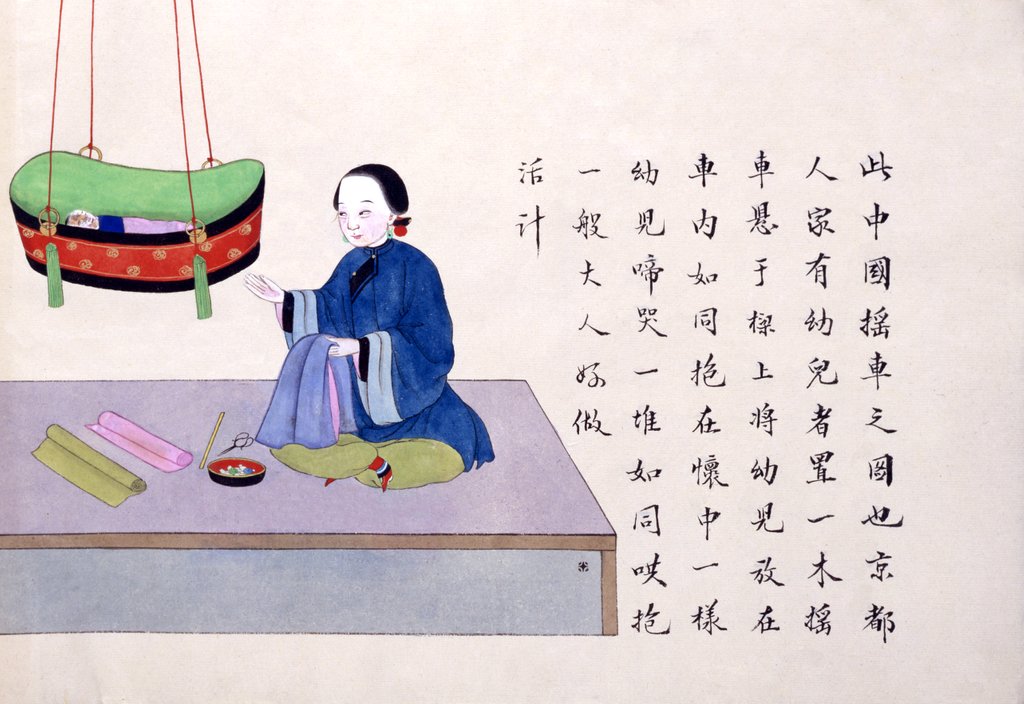 此中國搖車之圖也京都
人家有幼兒者置一木搖
車懸于樑上將幼兒放在
車內如同抱在懷中一樣
幼兒啼哭一堆如同哄抱
一般大人好做
活計